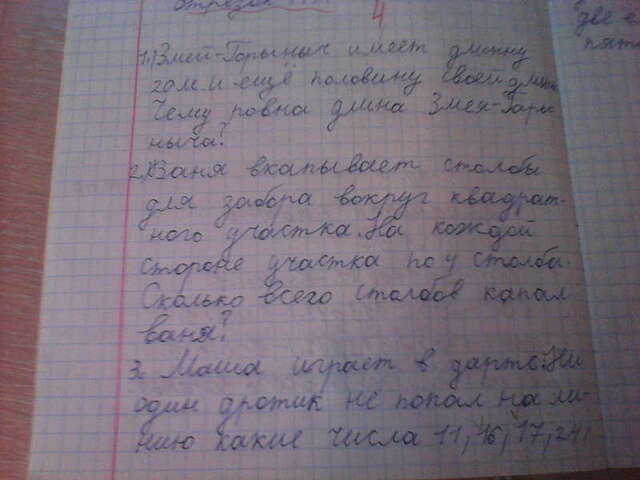 отрезок
4
две
пята
1.) Змей-Горыныч имеет длинну
20м и ещё половину своей длины
Чему ровна длина Змея-Горы-
ныча?
2.) Ваня вкапывает столбы
для забора вокруг квадрат-
ного участка. На каждой
стороне участка по 4 столба.
Сколько всего столбов капал
ваня?
3. Маша играет в дартс. Ни
один дротик не попал на ли-
нию какие числа 11, 16, 17, 24,